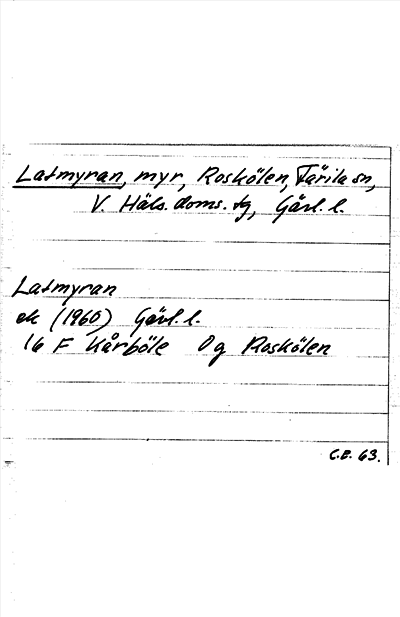 Latmyran, myr, Roskölen, Färila sn,
V. Häls. doms. tg, Gävl. l.
Latmyran
ek (1960) Gävl. l.
16 F Kårböle 0 g Roskölen
C.E. 63.